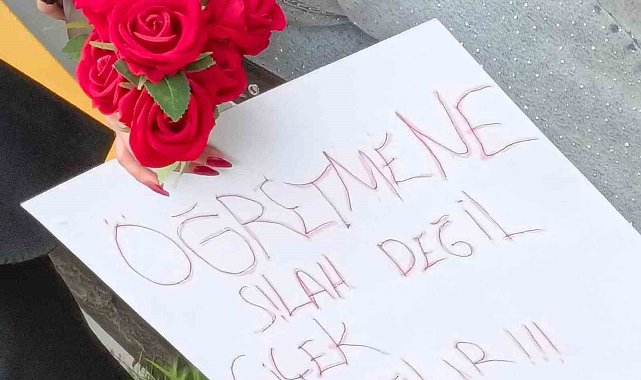 ÖĞRETMENE
SİLAH DEĞİL
ÇİÇEK